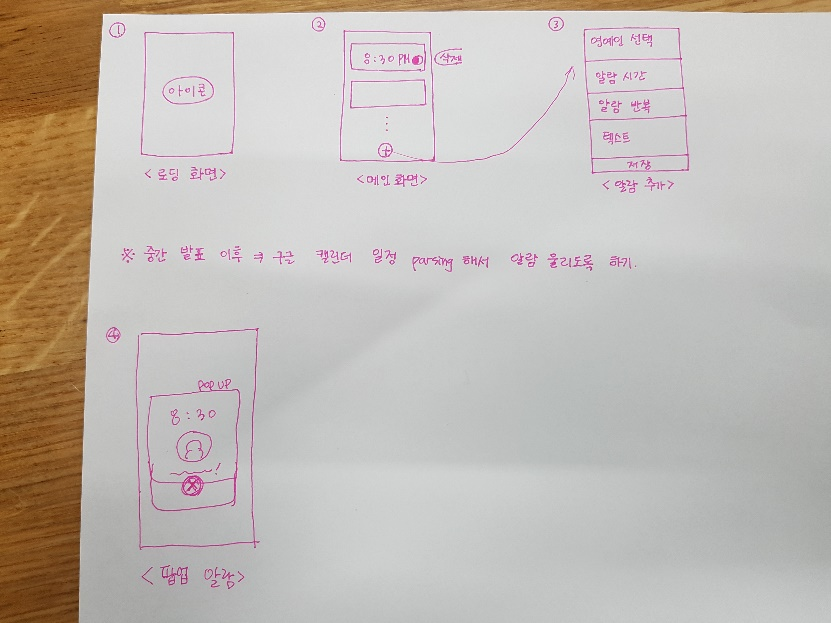 ①
아이콘
<로딩 화면>
②
8:30 PM
삭제
+
<메인 화면>
③
연예인 선택
알람 시간
알람 반복
텍스트
저장
<알람 추가>
※ 중간 발표 이후 ⇒ 구글 캘린더 일정 parsing 해서 알람 울리도록 하기.
④
POP UP
8:30
!
X
<팝업 알람>